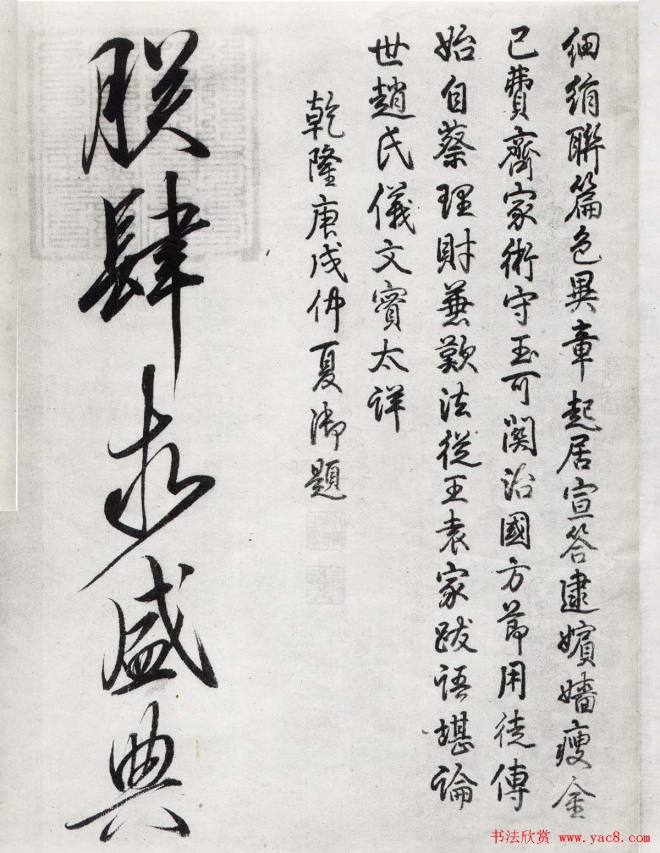 細絹聯篇色異章起居宣答逮嬪嬙瘦金
已費齊家術守玉可関治國方節用徒傳
始自蔡理財兼歎法從王袁家跋語堪論
世趙氏儀文實太詳
乾隆庚戌仲夏御題
朕肆求盛典
书法欣赏 www.yac8.com